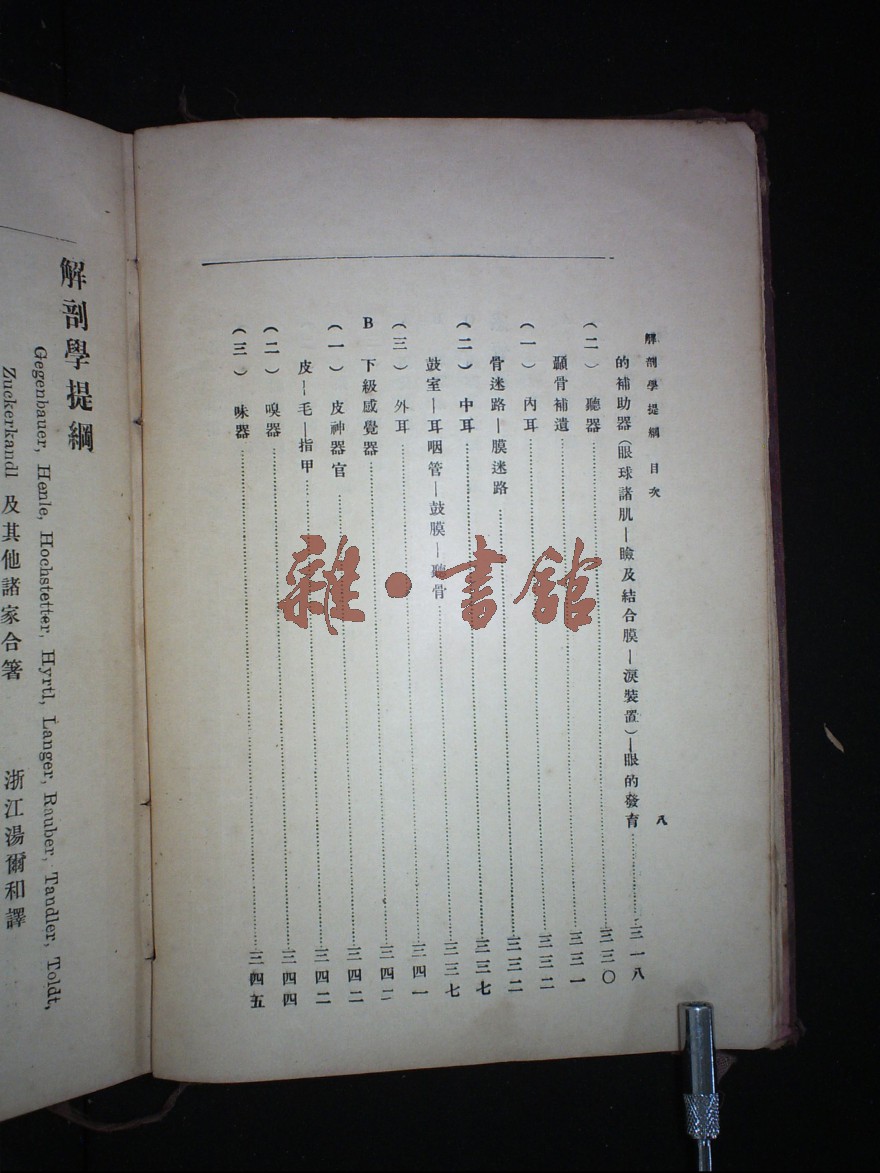 解剖學提綱 目次 八
的補助器(眼球諸肌—瞼及結合膜—淚裝置)—眼的發育……三一八
(二)聽器……三三〇
顳骨補遺……三三一
(一)內耳……三三二
骨迷路—膜迷路……三三二
(二)中耳……三三七
鼓室—耳咽管—鼓膜—聽骨……三三七
(三)外耳……三四一
B 下級感覺器……三四二
(一)皮神器官……三四二
皮—毛—指甲……三四二
(二)嗅器……三四四
(三)味器……三四五
解剖學提綱
Gegenbauer, Henle, Hochstetter, Hyrtl, Langer, Rauber, Tandler, Toldt,
Zuckerkandl 及其他諸家合箸 浙江湯爾和譯
雜·書館